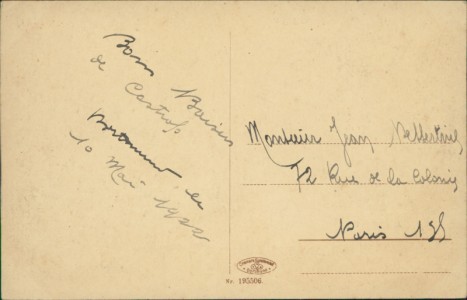 Bons Baisers
de Castrop
Dortmund, le
10 Mai 1922
Monsieur Jean
72 Rue de la Colonie
Paris 13
Nr. 195506.